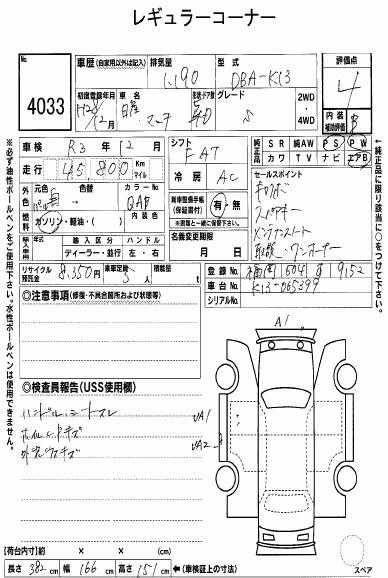 レギュラーコーナー
No.
4033
車歴(自家用以外は記入) 排気量 型式
1,190 DBA-K13
初度登録年月 車名 形状・ドア数 グレード
H24/12月 日産 マーチ 5D S
2WD・4WD
評価点
4
内装補助評価 B
車検 R3年12月
走行 45,800 Km マイル
シフト
FAT
冷房 AC
外色 元色 色替 カラーNo.
QAB
内装色
燃料 ガソリン・軽油・( )
新車整備手帳(保証書付) 有・無
※図面と一緒に保管下さい。
輸入車専用 年式 輸入区分 ハンドル
ディーラー・並行 左・右
名義変更期限
月 日
リサイクル預託金 8,350円 乗車定員 5人 積載量 t
純正品 SR 純AW PS PW
カワ TV ナビ エアB
セールスポイント
スペアキー
メンテナンスノート
取説・ワンオーナー
登録No. 福岡 504 す 9152
車台No. K13-065399
シリアルNo.
※必ず油性ボールペンをご使用下さい。水性ボールペンは使用できません。
←純正品に限り該当に○をつけて下さい。
◎注意事項(修復・不具合箇所および状態等)
◎検査員報告(USS使用欄)
ハンドル、シートスレ
ホイルCPキズ
外装ウスキズ
A1
A1
A2
【荷台内寸】約 × × (cm)
長さ 382cm 幅 166cm 高さ 151cm ←(車検証上の寸法)
スペア